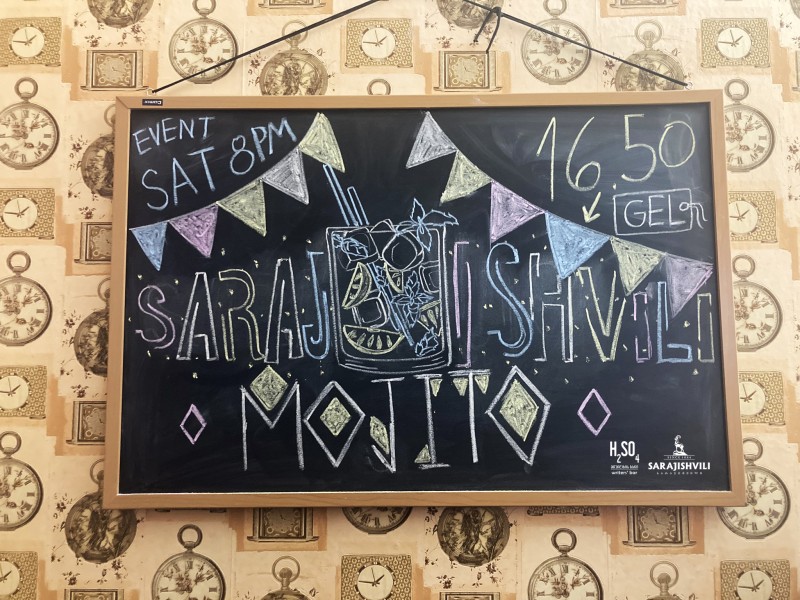 EVENT
SAT 8PM
16.50
GEL
SARAJISHVILI
MOJITO
H2SO4
writers' bar
SARAJISHVILI